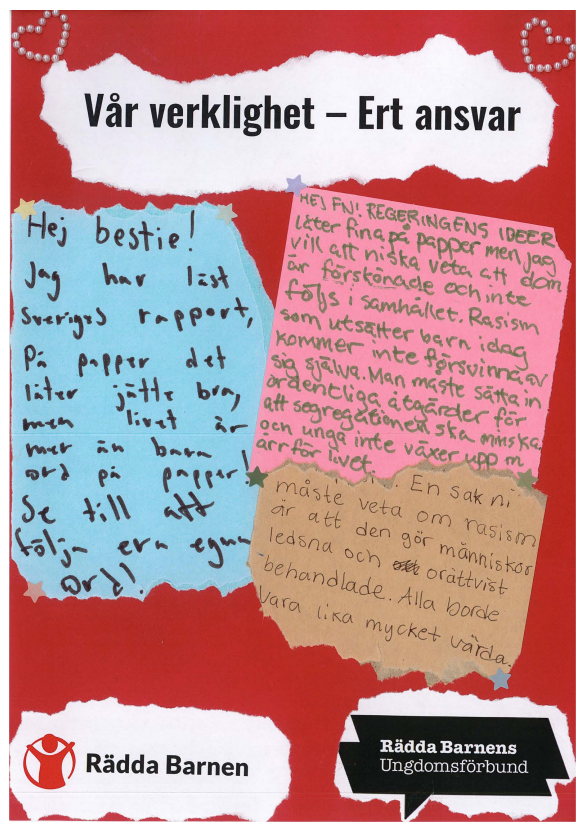 Vår verklighet – Ert ansvar
Hej bestie!
Jag har läst
Sveriges rapport,
På papper det
låter jätte bra,
men livet är
mer än bara
ord på papper!
Se till att
följa era egna
ord!
HEJ FN! REGERINGENS IDEER
låter fina på papper men jag
vill att ni ska veta att dom
är förskönade och inte
följs i samhället. Rasism
som utsätter barn idag
kommer inte försvinna av
sig själva. Man måste sätta in
ordentliga åtgärder för
att segregationen ska minska
och unga inte växer upp m
ärr för livet.
En sak ni
måste veta om rasism
är att den gör människor
ledsna och orättvist
behandlade. Alla borde
vara lika mycket värda.
Rädda Barnen
Rädda Barnens
Ungdomsförbund